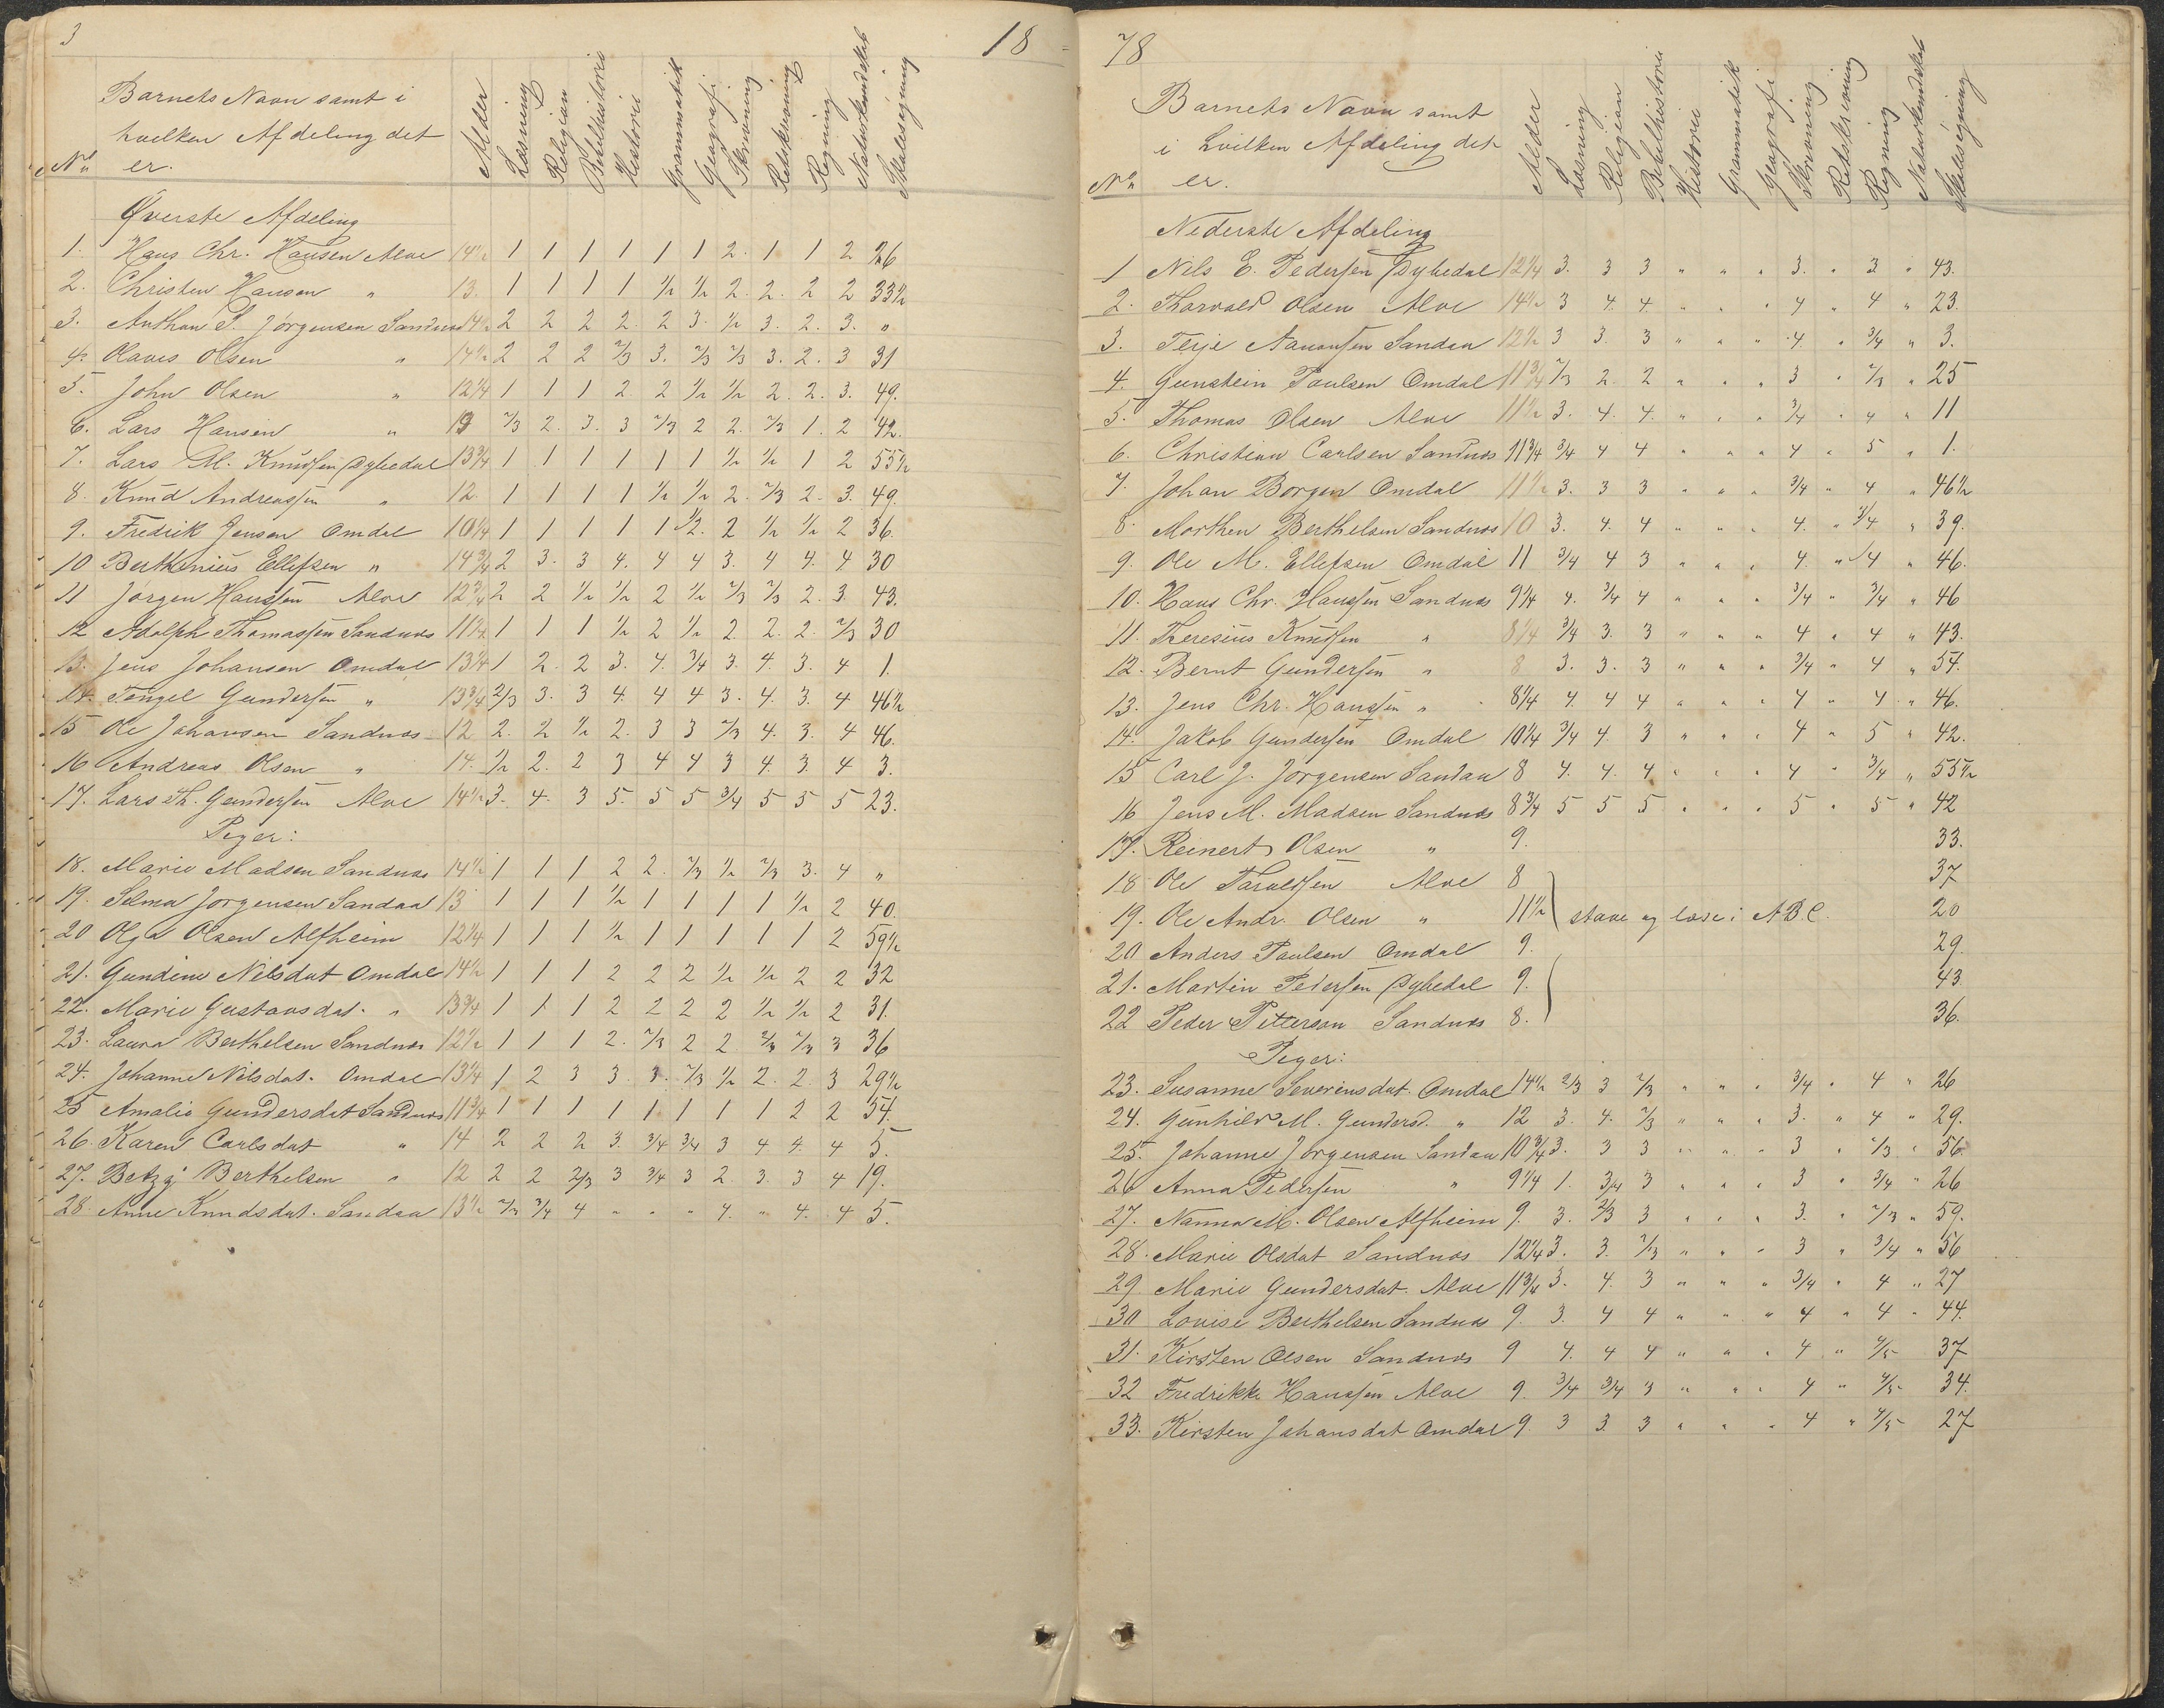 3
18
Barnets Navn samt i
hvilken Afdeling det
No er. Alder Læsning Religion Bibelhistorie Historie Grammatik Geografi Skrivning Retskrivning Regning Naturkundskab Skolesøgning
Øverste Afdeling
1. Hans Chr. Hansen Alve 14½ 1 1 1 1 1 1 2. 1 1 2 26
2. Christen Hansen " 13. 1 1 1 1 ½ ½ 2. 2. 2 2 33½
3. Anthon S. Jörgensen Sandnæs 14½ 2 2 2 2. 2 3. ½ 3. 2. 3. "
4. Olaves Olsen " 14½ 2 2 2 2/3 3. 2/3 2/3 3. 2. 3 31
5. John Olsen " 12¼ 1 1 1 2. 2 ½ ½ 2. 2. 3. 49.
6. Lars Hansen " 13 2/3 2. 3. 3 2/3 2 2. 2/3 1. 2 42.
7. Lars M. Knudsen Dybedal 13¾ 1 1 1 1 1 1 ½ ½ 1 2 55½
8. Knud Andreassen " 12. 1 1 1 1 ½ ½ 2. 2/3 2. 3. 49.
9. Fredrik Jensen Omdal 10¼ 1 1 1 1 1 ½. 2 ½ ½ 2 36.
10 Berthinius Ellefsen " 14¾ 2 3. 3 4. 4 4 3. 4 4. 4 30
11 Jørgen Hanssen Alve 12¾ 2 2 ½ ½ 2 ½ 2/3 2/3 2. 3. 43.
12 Adolph Thomassen Sandnæs 11½ 1 1 1 ½ 2 ½ 2. 2. 2. 2/3 30
13. Jens Johansen Omdal 13¼ 1 2. 2 3. 4. ¾ 3. 4. 3. 4 1.
14. Tengel Gundersen " 13¾ 2/3 3. 3 4. 4 4 3. 4. 3. 4 46½
15 Ole Johansen Sandnæs 12 2. 2 ½ 2. 3 3 2/3 4. 3. 4 46.
16 Andreas Olsen " 14. ½ 2. 2 3 4 4 3 4. 3. 4 3.
17. Lars Th. Gundersen Alve 14½ 3. 4. 3 5. 5 5 ¾ 5 5 5 23.
Piger:
18. Marie Madsen Sandnæs 14½ 1 1 1 2 2. 2/3 ½ 2/3 3. 4 "
19. Selma Jørgensen Sandaa 13 1 1 1 ½ 1 1 1 1 ½ 2 40.
20 Olga Olsen Alfheim 12¼ 1 1 1 ½ 1 1 1 1 1 2 59½
21. Gundine Nilsdat Omdal 14½ 1 1 1 2 2 2 ½ ½ 2 2 32
22. Marie Gustavsdat. " 13¾ 1 1 1 2 2 2 2 ½ ½ 2 31.
23. Laura Berthelsen Sandnæs 12½ 1 1 1 2. 2/3 2 2 2/3 2/3 3 36
24. Johanne Nilsdat. Omdal 13¼ 1 2 3 3. 3. 2/3 ½ 2. 2. 3 29½
25 Amalie Gundersdat Sandnæs 11¾ 1 1 1 1 1 1 1 1 2 2 54.
26. Karen Carlsdat " 14 2 2 2 3. ¾ ¾ 3 4 4. 4 5.
27. Betzy Berthelsen " 12 2 2 2/3 3 ¾ 3 2. 3. 3 4 19.
28. Anne Knudsdat. Sandaa 13½ 2/3 ¾ 4 " " " 4. " 4. 4 5.
78
Barnets Navn samt
i hvilken Afdeling det
No er. Alder Læsning Religion Bibelhistorie Historie Grammatik Geografi Skrivning Retskrivning Regning Naturkundskab Skolesøgning
Nederste Afdeling
1 Nils E. Pedersen Dybedal 12¼ 3. 3 3 " " " 3. " 3 " 43.
2. Thorvald Olsen Alve 14½ 3 4. 4. " " " 4 " 4 " 23.
3. Terje Aanonsen Sandaa 12½ 3 3. 3 " " " 4 " ¾ " 3.
4. Gunstein Paulsen Omdal 11¾ 2/3 2. 2 " " " 3 " 2/3 " 25
5. Thomas Olsen Alve 11½ 3. 4. 4. " " " ¾ " 4 " 11
6. Christian Carlsen Sandnæs 11¾ ¾ 4 4 " " " 4 " 5 " 1.
7. Johan Borgen Omdal 11½ 3. 3 3 " " " ¾ " 4 " 46½
8. Morthen Berthelsen Sandnæs 10 3. 4. 4 " " " 4. " ¾ " 39.
9. Ole M. Ellefsen Omdal 11 ¾ 4 3 " " " 4. " 4 " 46.
10. Hans Chr. Hanssen Sandnæs 9¼ 4. ¾ 4 " " " ¾ " ¾ " 46
11. Theresius Knudsen " 8¼ ¾ 3. 3 " " " 4 " 4 " 43.
12. Bernt Gundersen " 8 3. 3. 3 " " " ¾ " 4 " 54.
13. Jens Chr. Hanssen " 8¼ 4. 4 4 " " " 4 " 4 " 46.
14. Jakob Gundersen Omdal 10¼ ¾ 4. 3 " " " 4 " 5 " 42.
15 Carl J. Jørgensen Sandaa 8 4. 4. 4 " " " 4 " ¾ " 55½
16 Jens M. Madsen Sandnæs 8¾ 5 5 5 " " " 5 " 5 " 42
17. Reinert Olsen " 9. 33.
18 Ole Taraldsen Alve 8 37
19. Ole Andr. Olsen " 11½ stave og læse i A.B.C. 20
20 Anders Paulsen Omdal 9. 29.
21. Martin Pedersen Dybedal 9. 43.
22 Peder Petterson Sandnæs 8. 36.
Piger:
23. Susanne Severinsdat. Omdal 14½ 2/3 3 2/3 " " " ¾ " 4 " 26
24. Gunhild M. Gundersd. " 12 3. 4. 2/3 " " " 3. " 4 " 29.
25. Johanne Jørgensen Sandaa 10¾ 3. 3 3 " " " 3 " 2/3 " 56
26 Anna Pedersen " 9¼ 1. ¾ 3 " " " 3 " ¾ " 26
27. Nanna M. Olsen Alfheim 9. 3. 2/3 3 " " " 3. " 2/3 " 59.
28. Marie Olsdat Sandnæs 12¼ 3. 3. 2/3 " " " 3 " ¾ " 56
29 Marie Gundersdat. Alve 11¾ 3. 4. 3 " " " ¾ " 4 " 27
30 Lovise Berthelsen Sandnæs 9. 3. 4 4 " " " 4 " 4 " 44.
31. Kirsten Olsen Sandnæs 9 4. 4 4 " " " 4 " 4/5 37
32 Fredrikke Hanssen Alve 9. ¾ ¾ 3 " " " 4 " 4/5 34.
33. Kirsten Johansdat Omdal 9. 3 3. 3 " " " 4 " 4/5 27